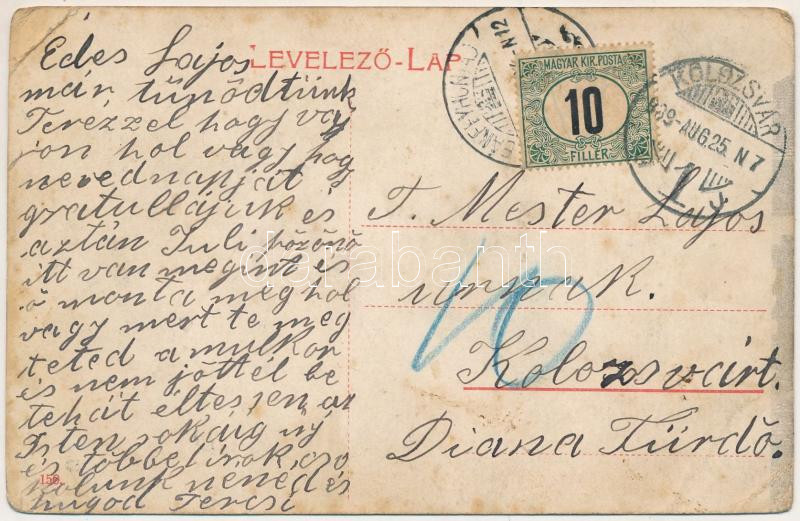 LEVELEZŐ-LAP
Edes Lajos
már tünődtünk
Terézzel hogy vaj
jon hol vagy hog
nevednapját
gratullájuk és
aztán Juli közönö
itt van megint és
ő monta meg hol
vagy mert te meg
teted a multkor
és nem jöttél be
tehát éltessen az
Isten sokáig
és többed irok cso
kolunk nenéd és
hugod Tercsi
156.
MAGYAR KIR. POSTA
10
FILLÉR
KOLOZSVÁR
909-AUG. 25. N 7
N 12
T. Mester Lajos
urnak.
10
Kolozsvárt.
Diana Fürdő.
darabanth